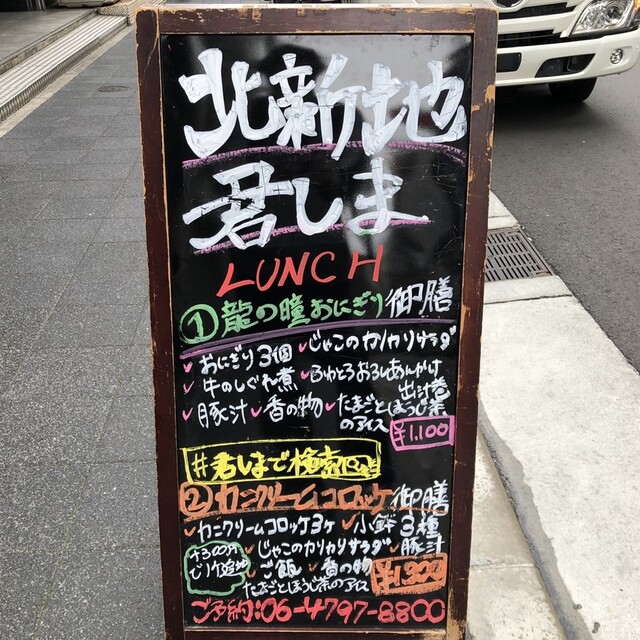 北新地
君しま
LUNCH
①龍の瞳おにぎり御膳
✓おにぎり3個 ✓じゃこのカリカリサラダ
✓牛のしぐれ煮 ✓ふわとろおろしあんかけ
出汁巻
✓豚汁 ✓香の物 ✓たまごとほうじ茶
のアイス
¥1,100
#君しまで検索
②カニクリームコロッケ御膳
✓カニクリームコロッケ3ヶ ✓小鉢3種
✓じゃこのカリカリサラダ ✓豚汁
✓ご飯 ✓香の物
たまごとほうじ茶のアイス
+300円
¥1,300
ご予約:06-4797-8800